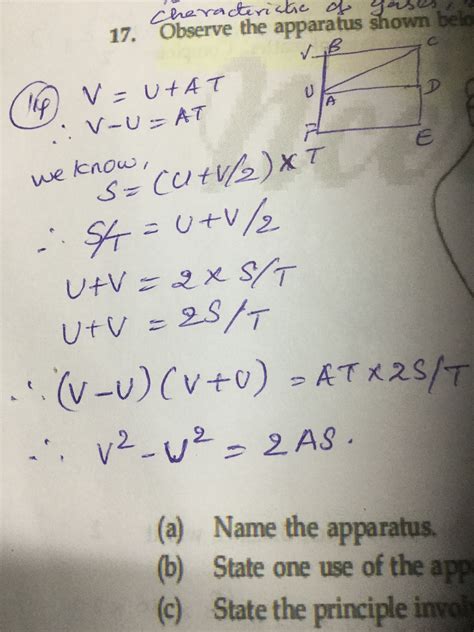 characteristic of gases,
17. Observe the apparatus shown
V B C
U A D
F E
14
V = U + AT
∴ V-U = AT
we know,
S = (U+V/2) × T
∴ S/T = U+V/2
U+V = 2 × S/T
U+V = 2S/T
∴ (V-U) (V+U) = AT × 2S/T
∴ V² - U² = 2AS.
(a) Name the apparatus.
(b) State one use of the app
(c) State the principle invol